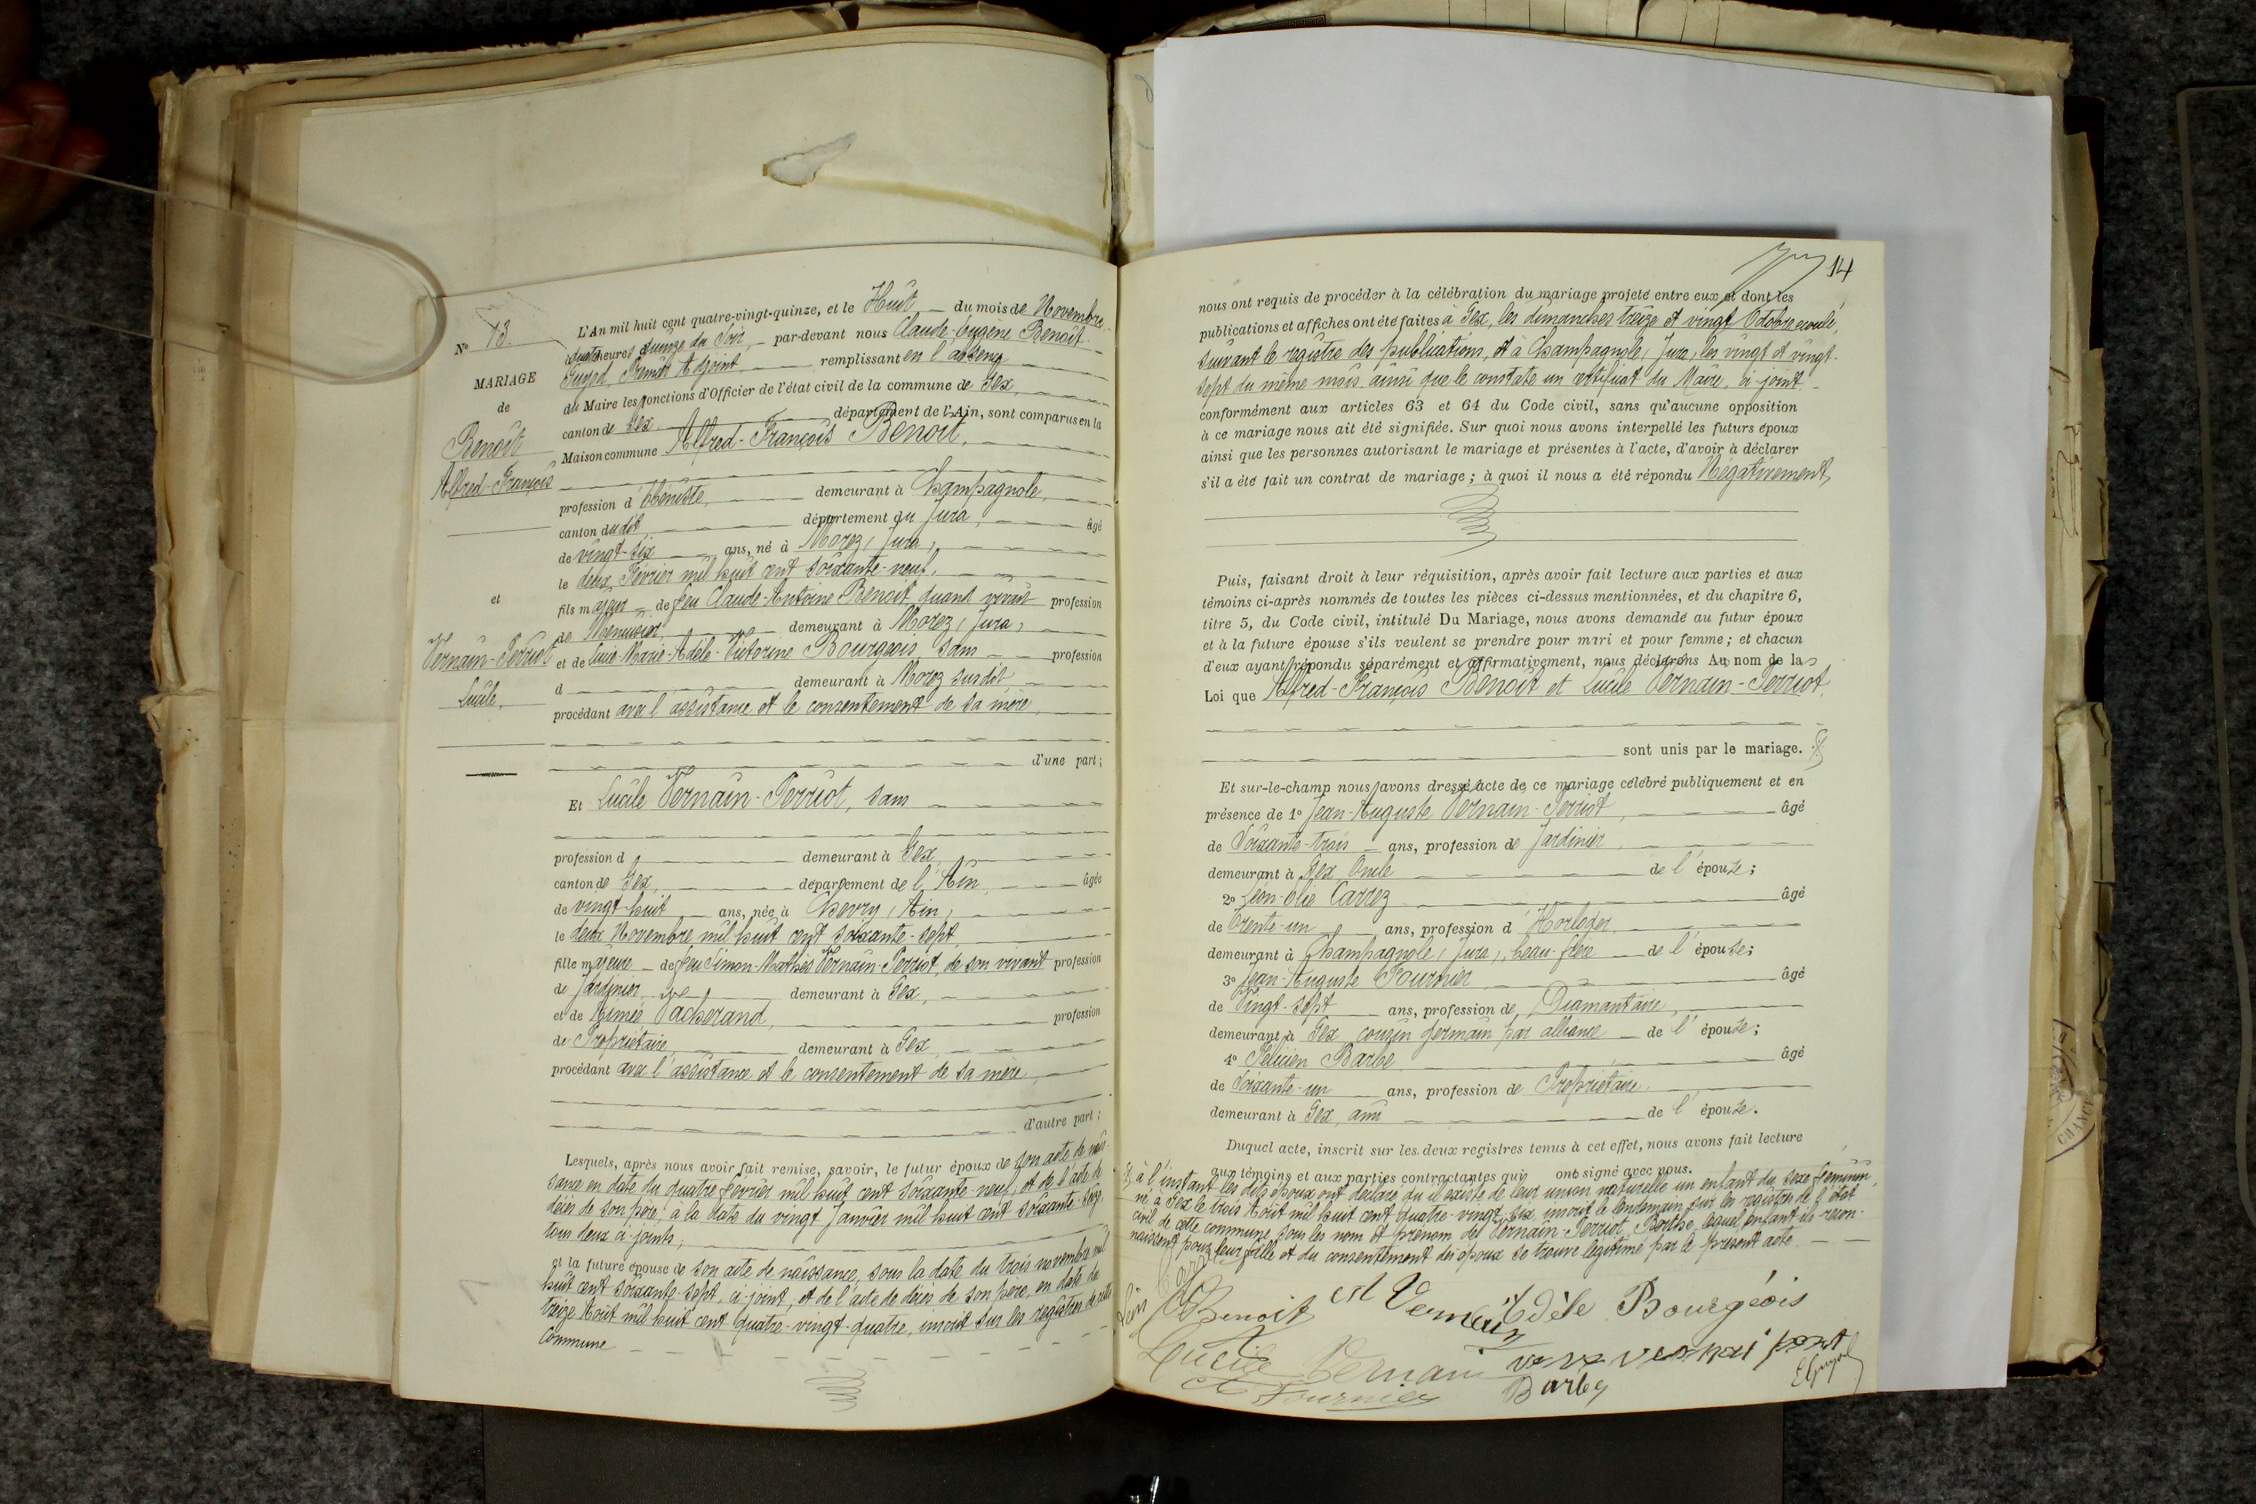 N° 13.
MARIAGE
de
Benoit
Alfred-François
et
Vernain-Perriot
Lucile.
L'An mil huit cent quatre-vingt-quinze, et le Huit du mois de Novembre
heures du Soir, par-devant nous Claude-Eugène Benoit
Premier Adjoint remplissant en l'absence
du Maire les fonctions d'Officier de l'état civil de la commune de Gex,
canton de Gex département de l'Ain, sont comparus en la
Maison commune Alfred-François Benoit,
profession d'ébéniste, demeurant à Champagnole,
canton dudit, département du Jura, âgé
de vingt-six ans, né à Morez, Jura,
le deux Février mil huit cent soixante-neuf,
fils majeur de feu Claude-Antoine Benoit, quand vivait profession
de Menuisier, demeurant à Morez, Jura,
et de Lucie-Marie-Adèle-Victorine Bourgeois sans profession
d demeurant à Morez susdit
procédant avec l'assistance et le consentement de sa mère,
d'une part;
Et Lucile Vernain-Perriot, sans
profession d demeurant à Gex,
canton de Gex, département de l'Ain, âgée
de vingt-huit ans, née à Chevry, Ain,
le deux Novembre mil huit cent soixante-sept,
fille majeure de feu Simon-Mathieu Vernain-Perriot, de son vivant profession
de Jardinier demeurant à Gex,
et de Aimée Vacherand, profession
de Propriétaire demeurant à Gex,
procédant avec l'assistance et le consentement de sa mère,
d'autre part;
Lesquels, après nous avoir fait remise, savoir, le futur époux de son acte de nais-
sance en date du quatre février mil huit cent soixante neuf, et de l'acte de
décès de son père, à la date du vingt Janvier mil huit cent soixante-seize
tous deux ci-joints,
et la future épouse de son acte de naissance, sous la date du trois novembre mil
huit cent soixante-sept, ci-joint, et de l'acte de décès de son père, en date du
treize Août mil huit cent quatre-vingt-quatre, inscrit sur les registres de cette
Commune
14
nous ont requis de procéder à la célébration du mariage projeté entre eux et dont les
publications et affiches ont été faites à Gex, les dimanches treize et vingt Octobre écoulé,
suivant le registre des publications, et à Champagnole, Jura, les vingt et vingt-
sept du même mois ainsi que le constate un certificat du Maire, ci-joint
conformément aux articles 63 et 64 du Code civil, sans qu'aucune opposition
à ce mariage nous ait été signifiée. Sur quoi nous avons interpellé les futurs époux
ainsi que les personnes autorisant le mariage et présentes à l'acte, d'avoir à déclarer
s'il a été fait un contrat de mariage; à quoi il nous a été répondu Négativement,
Puis, faisant droit à leur réquisition, après avoir fait lecture aux parties et aux
témoins ci-après nommés de toutes les pièces ci-dessus mentionnées, et du chapitre 6,
titre 5, du Code civil, intitulé Du Mariage, nous avons demandé au futur époux
et à la future épouse s'ils veulent se prendre pour mari et pour femme; et chacun
d'eux ayant répondu séparément et affirmativement, nous déclarons Au nom de la
Loi que Alfred-François Benoit et Lucile Vernain-Perriot,
sont unis par le mariage.
Et sur-le-champ nous avons dressé acte de ce mariage célébré publiquement et en
présence de 1° Jean-Auguste Vernain-Perriot, âgé
de Soixante-trois ans, profession de Jardinier,
demeurant à Gex, Oncle de l'épouse;
2° Léon-Elie Carrez âgé
de trente-un ans, profession d'Horloger
demeurant à Champagnole, Jura, beau-frère de l'épouse;
3° Jean-Auguste Fournier âgé
de Vingt-sept ans, profession de Diamantaire,
demeurant à Gex cousin germain par alliance de l'épouse;
4° Félicien Barbe âgé
de Soixante-un ans, profession de Propriétaire
demeurant à Gex, ami de l'épouse.
Duquel acte, inscrit sur les deux registres tenus à cet effet, nous avons fait lecture
aux témoins et aux parties contractantes qui ont signé avec nous.
à l'instant les dits époux ont déclaré qu'il existe de leur union naturelle un enfant du sexe féminin,
né à Gex le trois Août mil huit cent quatre-vingt-six, inscrit le lendemain sur les registres de l'état
civil de cette commune sous les nom et prénom de Vernain-Perriot Berthe, lequel enfant ils recon-
naissent pour leur fille et du consentement des époux se trouve légitimé par le présent acte.
Léon Carrez
Benoit
Vernain
Adèle Bourgeois
Lucile Vernain
Fournier
Barbe